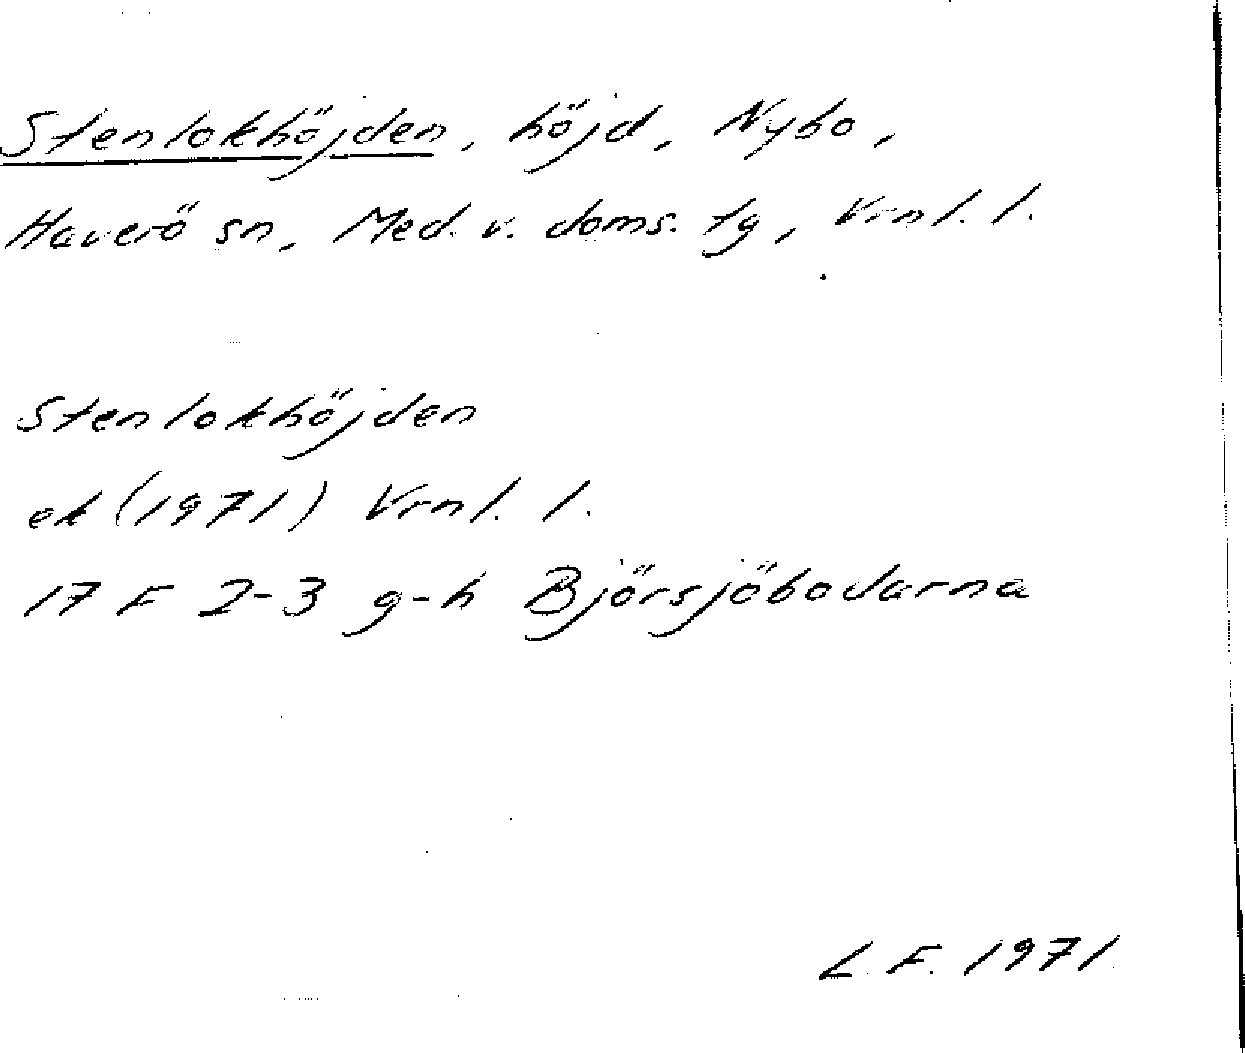 Stenlokhöjden, höjd, Nybo,
Haverö sn, Med. v. doms. tg, Vrnl. l.
Stenlokhöjden
ek (1971) Vrnl. l.
17 F 2-3 g-h Björsjöbodarna
L. F. 1971